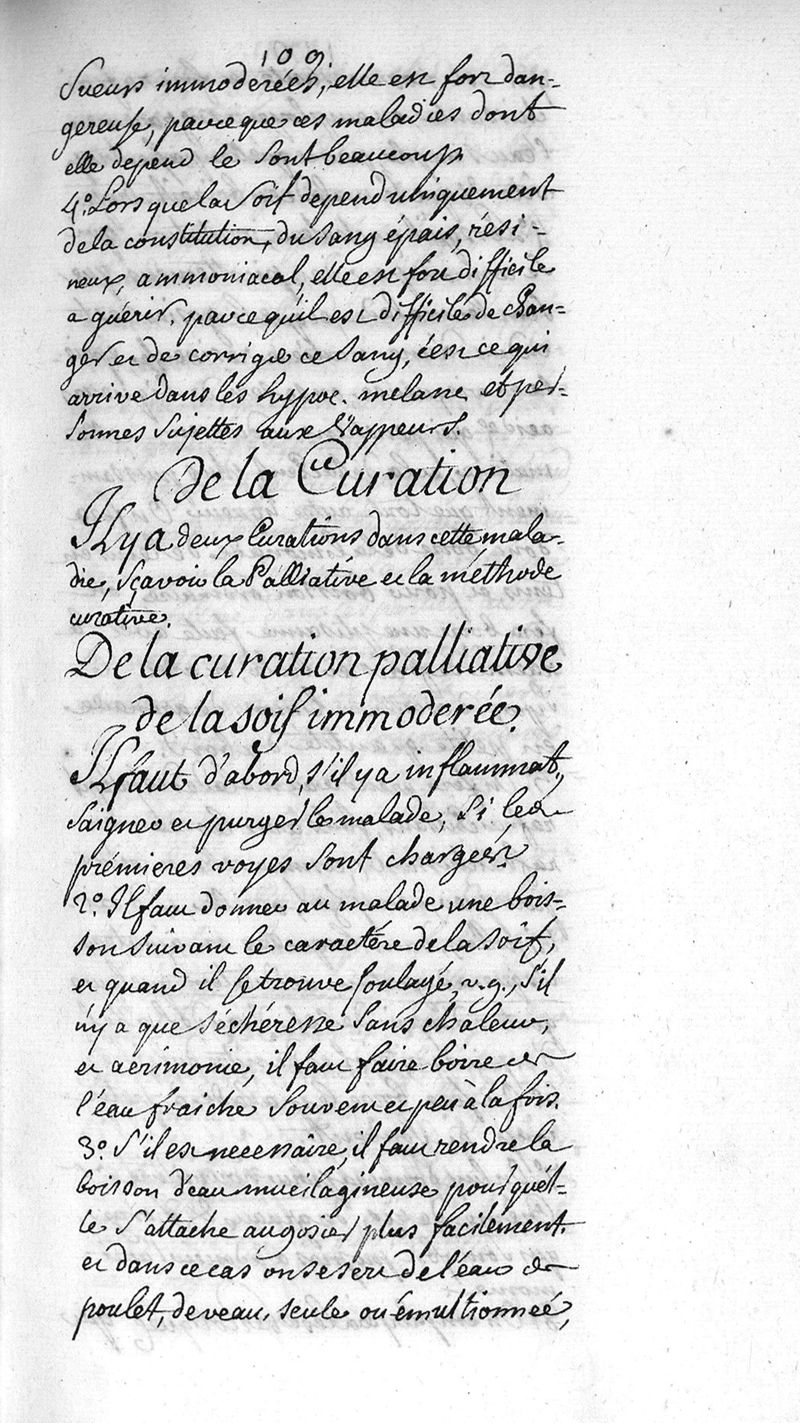 109
Sueurs immoderées, elle est fort dan-
gereuse, parce que ces maladies dont
elle depend le sont beaucoup
4.° Lors que la Soif depend uniquement
de la constitution, du Sang épais, rési-
neux, ammoniacal, elle est fort difficile
a guérir, parce qu'il est difficile de chan-
ger et de corriger ce Sang, c'est ce qui
arrive dans les hypoc. melanc. et per-
sonnes sujettes aux Vappeurs.
De la Curation
Il y a deux Curations dans cette mala-
die, sçavoir la Palliative et la méthode
curative.
De la curation palliative
de la soif immoderée.
Il faut d'abord, s'il y a inflammat.,
Saigner et purger le malade, Si les
prémieres voyes sont chargeés
2.° Il faut donner au malade une bois-
son suivant le caractére de la Soif,
et quand il se trouve soulagé, v.g., s'il
n'y a que séchéresse sans chaleur,
et acrimonie, il faut faire boire
l'eau fraiche souvent et peu à la fois.
3.° S'il est necessaire, il faut rendre la
boisson d'eau mucilagineuse pour quél-
le s'attache au gosier plus facilement.
et dans ce cas on se sert de l'eau de
poulet, de veau, seule ou émultionneé,